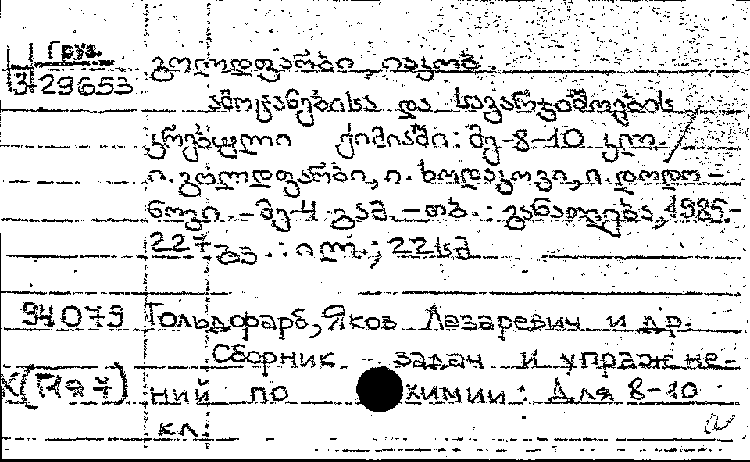 Груз.
3-29653
გოლდფარბი, იაკობ.
ამოცანებისა და სავარჯიშოების
კრებული ქიმიაში: მე-8-10 კლ. /
ი. გოლდფარბი, ი. ხოდაკოვი, ი. დოდო-
ნოვი. - მე-4 გამ. - თბ. : განათლება, 1985.-
227 გვ. : ილ.; 22სმ
94079 Гольдфарб, Яков Лазаревич и др.
Сборник задач и упражне-
ний по химии : Для 8-10
кл.